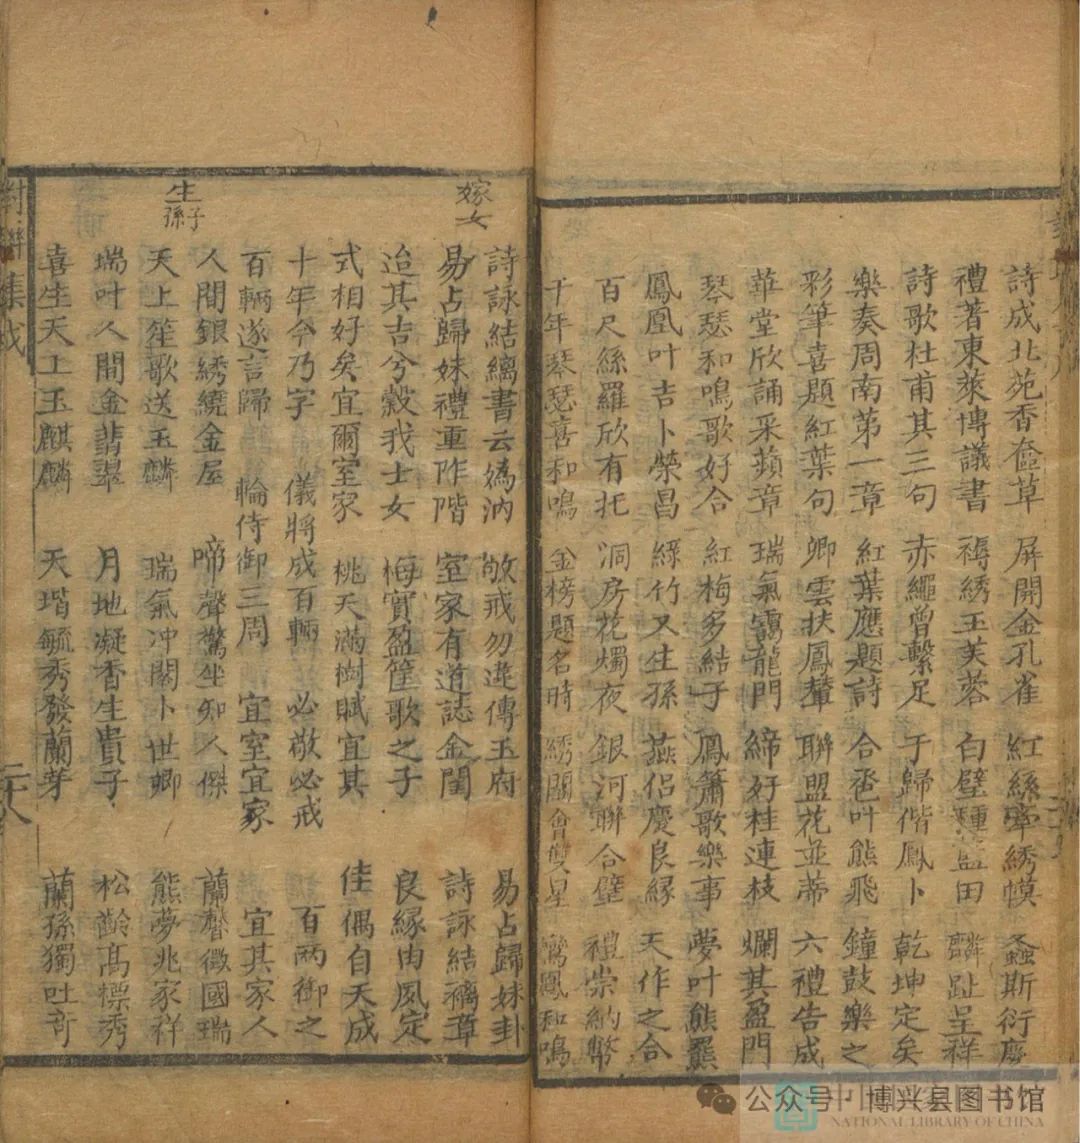 詩成北苑香奩草 屏開金孔雀 紅絲牽綉幙 螽斯衍慶
禮著東萊博議書 褥綉玉芙蓉 白璧種藍田 麟趾呈祥
詩歌杜甫其三句 赤繩曾繫足 于歸偕鳳卜 乾坤定矣
樂奏周南第一章 紅葉應題詩 合卺叶熊飛 鐘鼓樂之
彩筆喜題紅葉句 卿雲扶鳳輦 聯盟花並蒂 六禮告成
華堂欣誦采蘋章 瑞氣靄龍門 締好桂連枝 爛其盈門
琴瑟和鳴歌好合 紅梅多結子 鳳簫歌樂事 夢叶熊羆
鳳凰叶吉卜榮昌 綠竹又生孫 燕侶慶良緣 天作之合
百尺絲羅欣有托 洞房花燭夜 銀河聯合璧 禮崇納幣
千年琴瑟喜和鳴 金榜題名時 綉閣會雙星 鸞鳳和鳴
嫁女
詩詠結縭書云嬀汭 敬戒勿違傳玉府 易占歸妹卦
易占歸妹禮重阼階 室家有道誌金閨 詩詠結縭章
迨其吉兮穀我士女 梅實盈筐歌之子 良緣由夙定
式相好矣宜爾室家 桃夭滿樹賦宜其 佳偶自天成
十年今乃字 儀將成百輛 必敬必戒 百兩御之
百輛遂言歸 輪侍御三周 宜室宜家 宜其家人
生子孫
人間銀綉繞金屋 啼聲驚坐知人傑 蘭馨徵國瑞
天上笙歌送玉麟 瑞氣冲閣卜世卿 熊夢兆家祥
瑞叶人間金翡翠 月地凝香生貴子 松齡高標秀
喜生天上玉麒麟 天堦毓秀發蘭芽 蘭孫獨吐奇
對聯集成
二十八
公众号·博兴县图书馆
NATIONAL LIBRARY OF CHINA